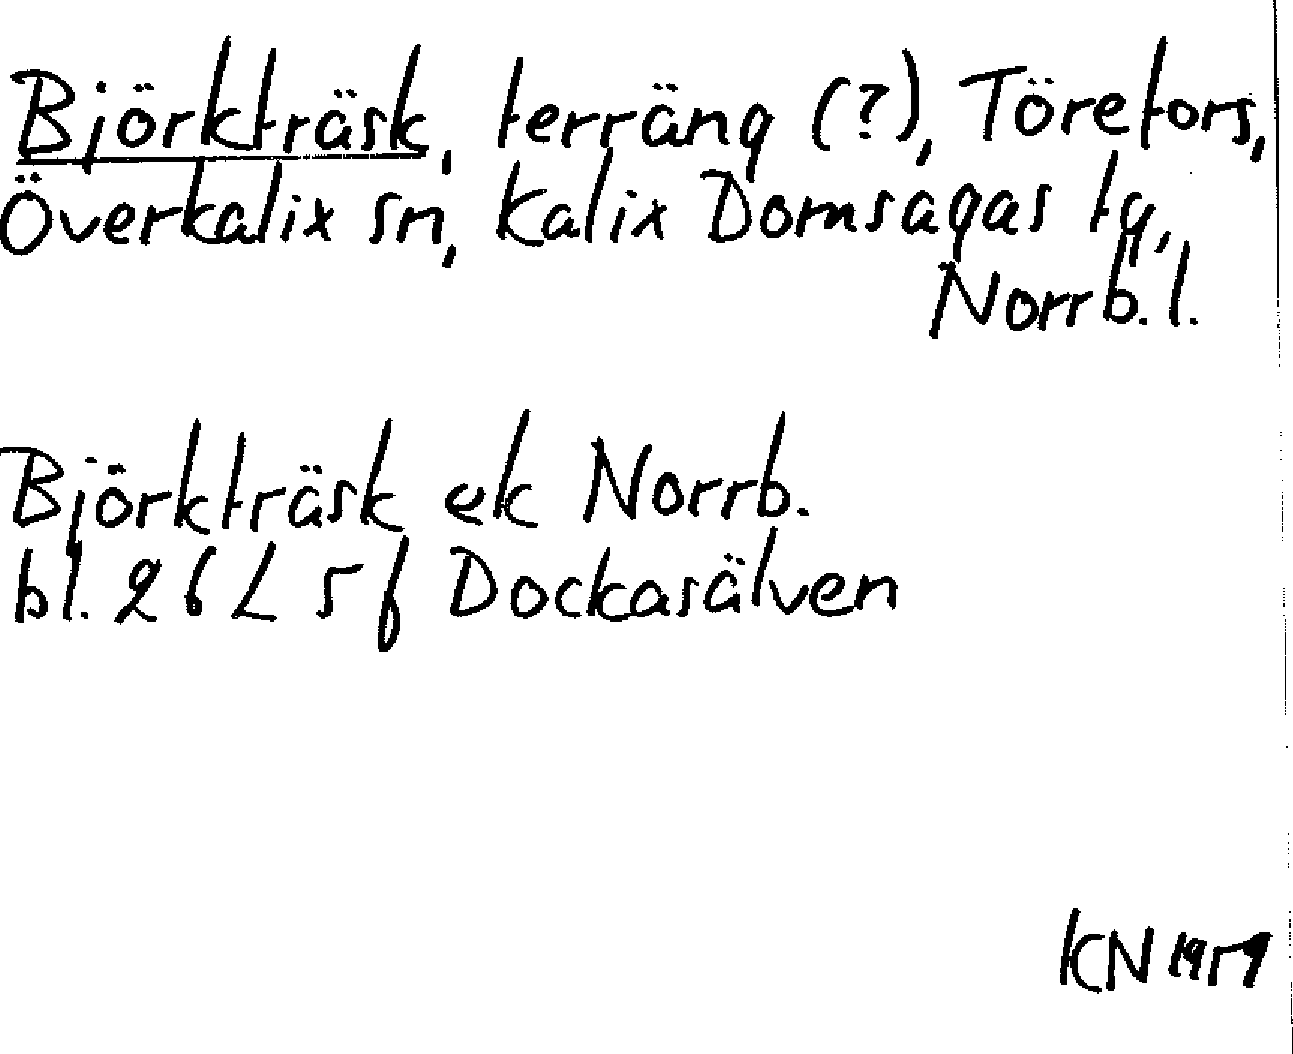 Björkträsk, terräng (?), Törefors,
Överkalix sn, Kalix Domsagas tg,
Norrb. l.
Björkträsk ek Norrb.
bl. 26 L 5f Dockasälven
KN 1959